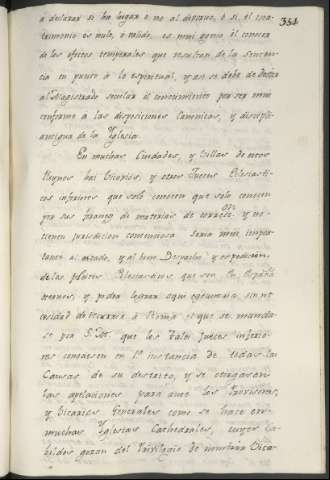 à declarar si ha lugar o no al divorcio, ò si el ma-
trimonio es nulo, ò valido, es mui ageno el conocer
de los efectos temporales que resultan de la senten-
cia en punto à lo espiritual, y asi se debe de dexar
al Magistrado secular el conocimiento por ser mui
conforme à las disposiciones Canonicas, y discipli-
antigua de la Yglesia.
En muchas Ciudades, y Villas de estos
Reynos hai Vicarios, y otros Jueces Eclesiasti-
cos inferiores que solo conocen que solo conocen
por sus de materias de correcc.on y no
tienen jurisdicion contenciosa. Seria mui impor-
tante al estado, y al buen Despacho, y expedicion
de los Eclesiasticos, que son en España
y podra lograrse aqui sin ne-
cesidad de recurrir à Roma si que se manda-
se por S. M. que los tales Jueces inferio-
res conociesen en 1.a instancia de todas las
Causas de su destrito, y se otorgasen
las apelaciones para ante los Provisores,
y Vicarios Generales como se hace en
muchas Yglesias Cathedrales, cuyos Ca-
bildos gozan del Privilegio de nombrar Vica-
354